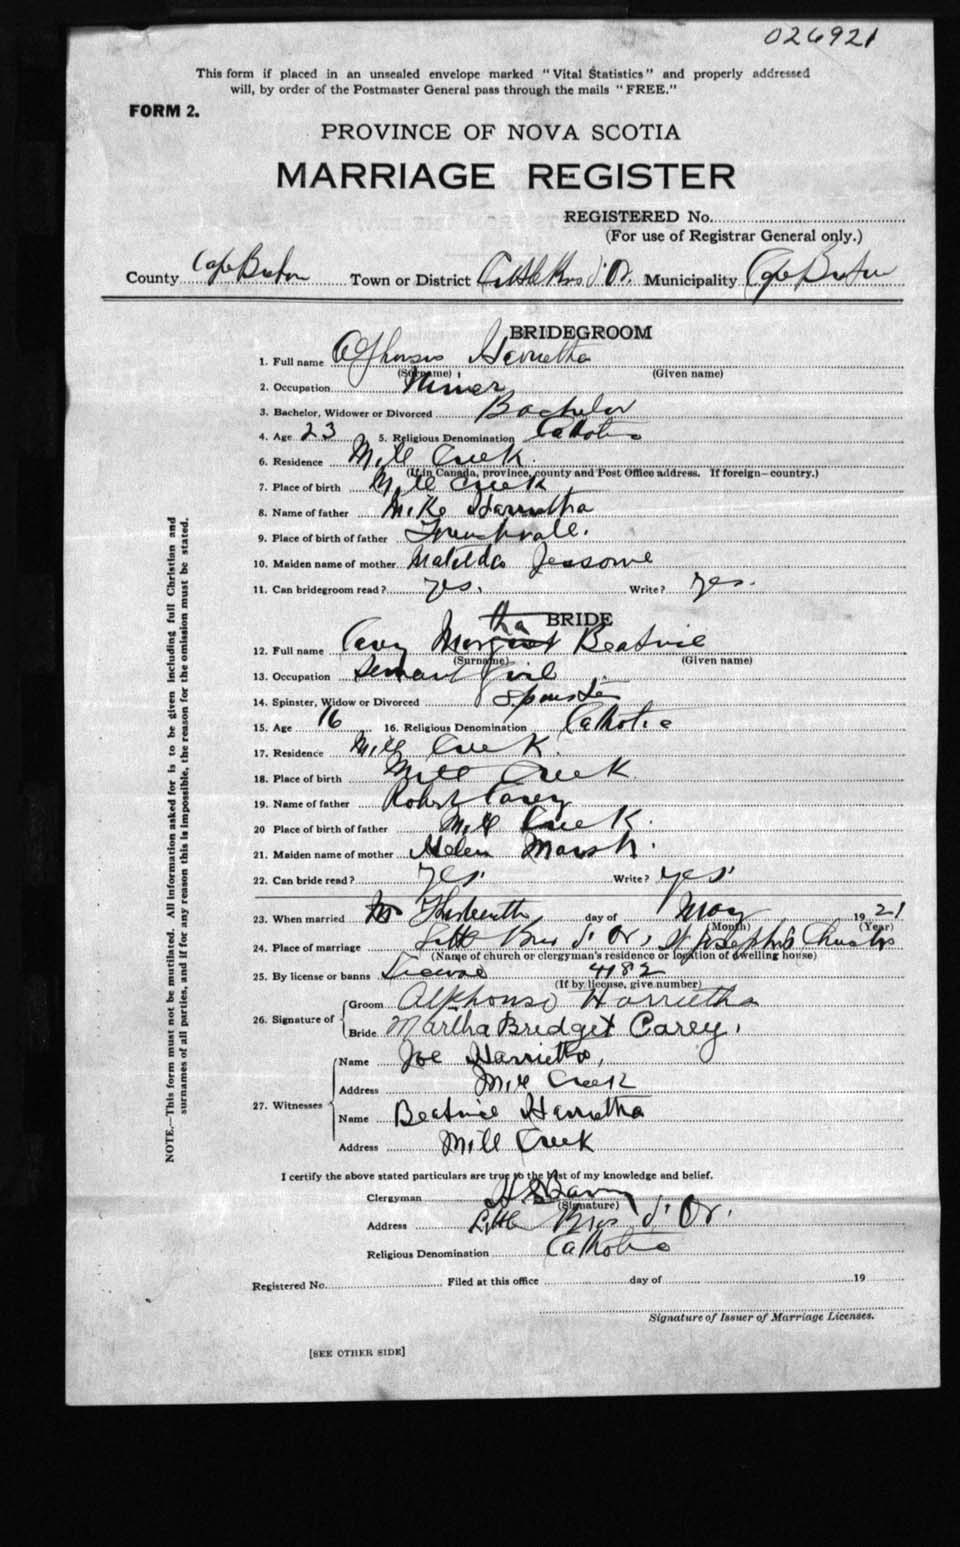 026921
This form if placed in an unsealed envelope marked "Vital Statistics" and properly addressed
will, by order of the Postmaster General pass through the mails "FREE."
FORM 2.
PROVINCE OF NOVA SCOTIA
MARRIAGE REGISTER
REGISTERED No.
(For use of Registrar General only.)
County Cape Breton Town or District Little Bras d'Or. Municipality Cape Breton
BRIDEGROOM
1. Full name Alfhonsis Harrietha
(Surname) (Given name)
2. Occupation Miner
3. Bachelor, Widower or Divorced Bachelor
4. Age 23 5. Religious Denomination Catholic
6. Residence Mill Creek
(If in Canada, province, county and Post Office address. If foreign—country.)
7. Place of birth Mill Creek
8. Name of father Mike Harrietha
9. Place of birth of father Frenchvale.
10. Maiden name of mother Matilda Jessome
11. Can bridegroom read? yes. Write? yes.
BRIDE
tha
12. Full name Cary Margret Beatrice
(Surname) (Given name)
13. Occupation Servant Girl
14. Spinster, Widow or Divorced Spinster
15. Age 16 16. Religious Denomination Catholic
17. Residence Mill Creek.
18. Place of birth Mill Creek
19. Name of father Robert Carey
20 Place of birth of father Mill Creek.
21. Maiden name of mother Helen Marsh.
22. Can bride read? yes. Write? yes.
23. When married Thirteenth day of May 1921
(Month) (Year)
24. Place of marriage Little Bras d'Or, St Joseph's Church
(Name of church or clergyman's residence or location of dwelling house)
25. By license or banns License 4182
(If by license, give number)
26. Signature of Groom Alphonse Harrietha
Bride Martha Bridget Carey.
27. Witnesses Name Joe Harrietha,
Address Mill Creek
Name Beatrice Harrietha
Address Mill Creek
I certify the above stated particulars are true to the best of my knowledge and belief.
Clergyman
(Signature)
Address Little Bras d'Or.
Religious Denomination Catholic
Registered No. Filed at this office day of 19
Signature of Issuer of Marriage Licenses.
[SEE OTHER SIDE]
NOTE.—This form must not be mutilated. All information asked for is to be given including full Christian and
surnames of all parties, and if for any reason this is impossible, the reason for the omission must be stated.